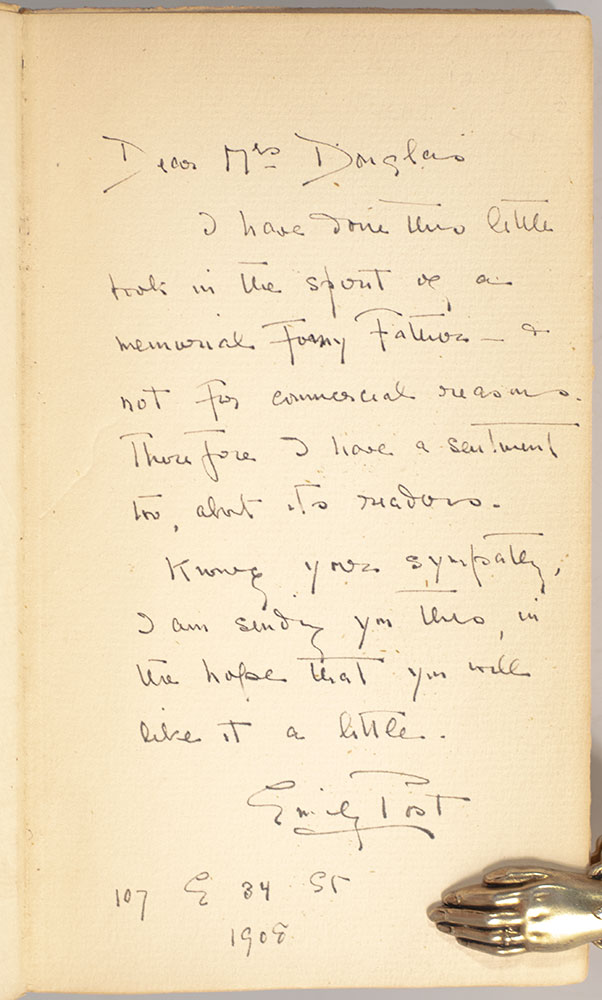 Dear Mrs Douglas
I have done this little
book in the spirit of a
memorial for my Father — &
not for commercial reasons.
Therefore I have a sentiment
too, about its readers.
Knowing your sympathy,
I am sending you this, in
the hope that you will
like it a little.
Emily Post
107 E 34 St
1908